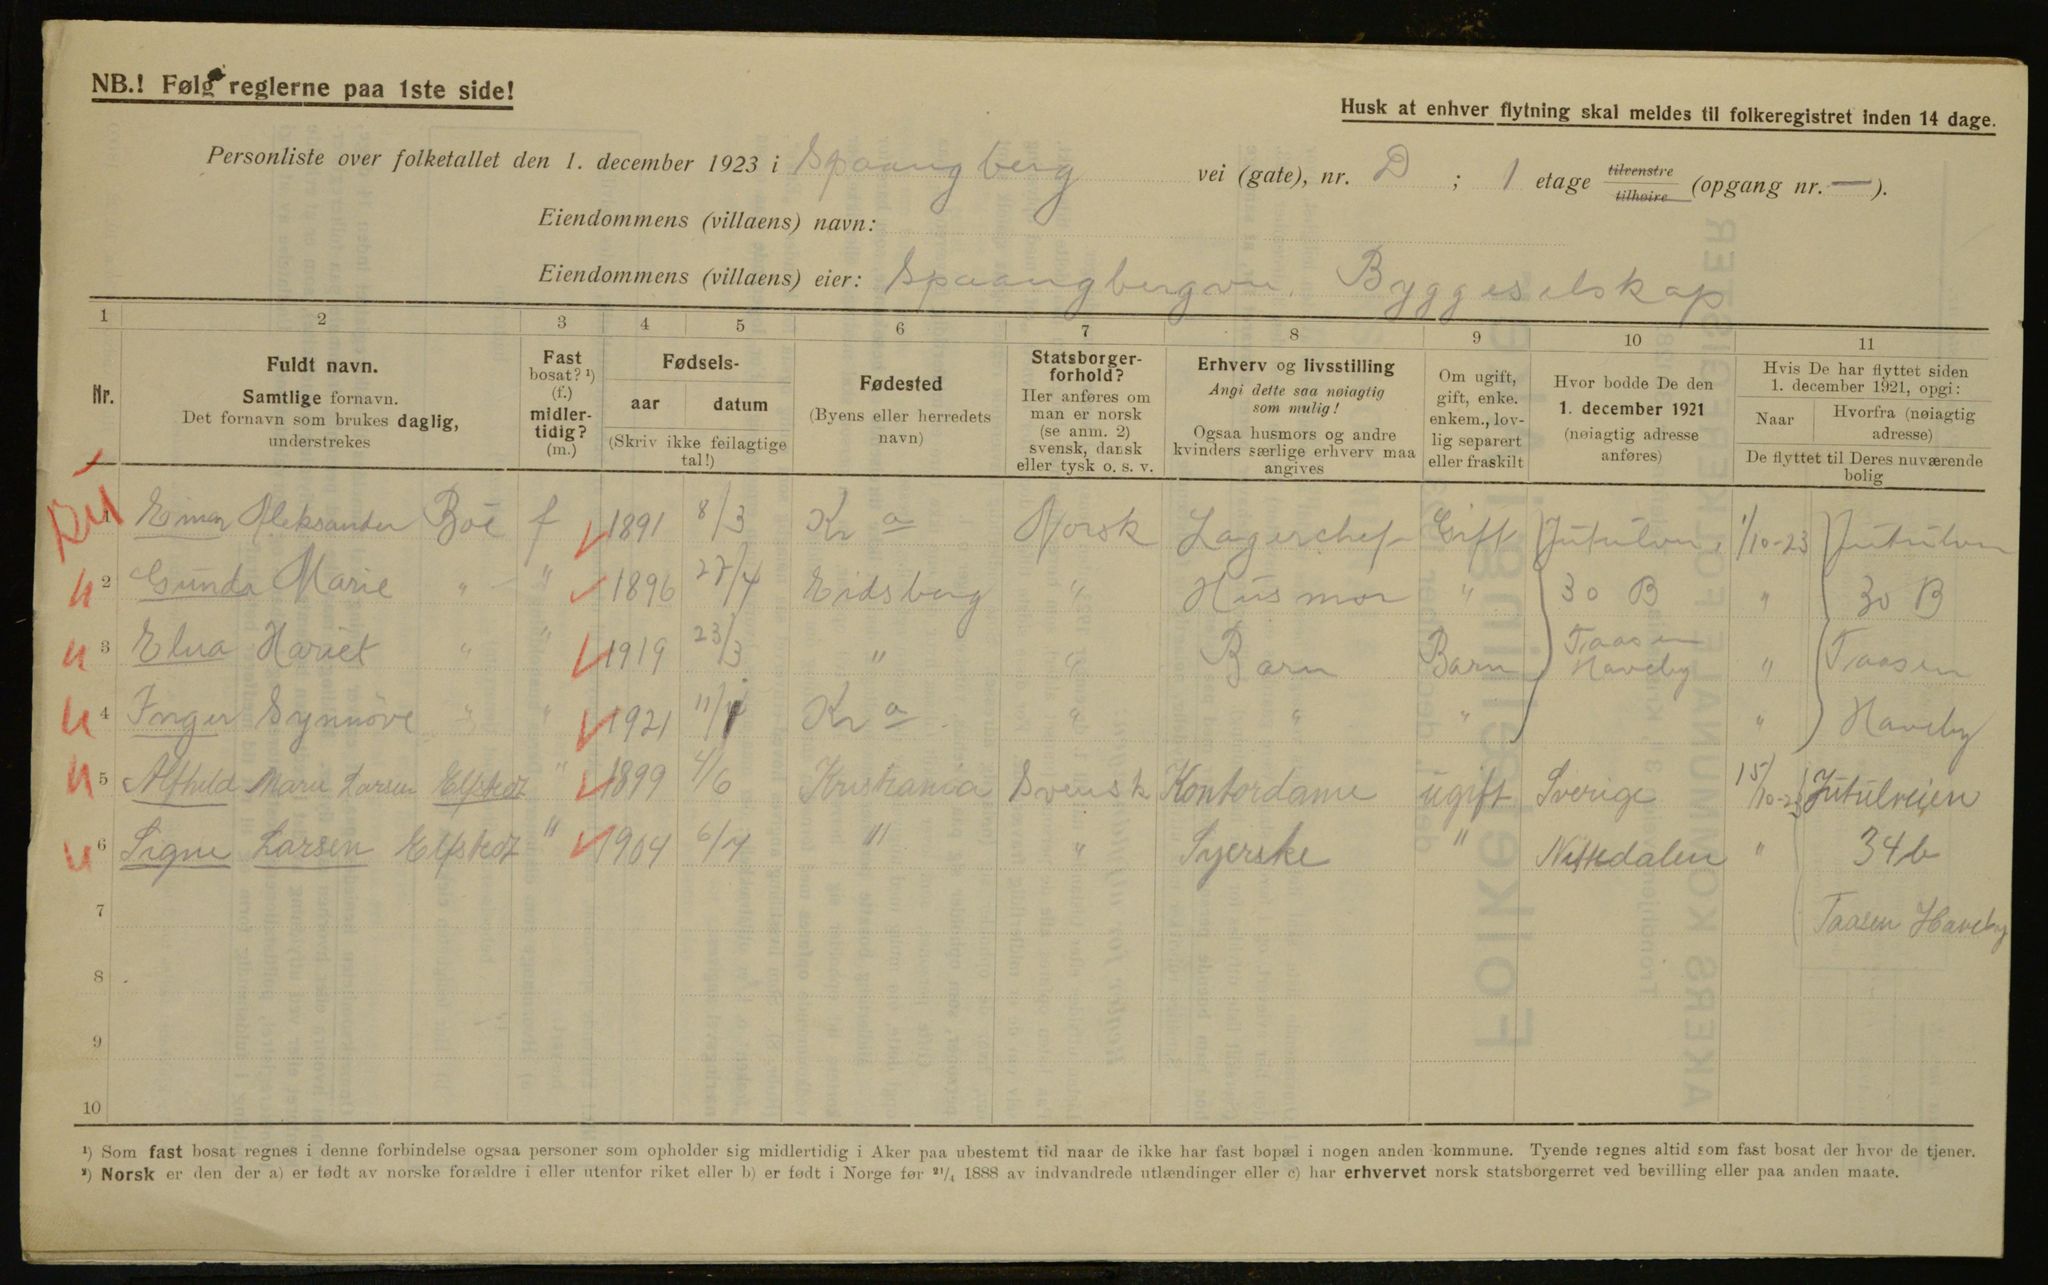 NB.! Følg reglerne paa 1ste side!
Husk at enhver flytning skal meldes til folkeregistret inden 14 dage.
Personliste over folketallet den 1. december 1923 i Spaangberg vei (gate), nr. D ; 1 etage tilvenstre tilhøire (opgang nr. — ).
Eiendommens (villaens) navn:
Eiendommens (villaens) eier: Spaangbergvn. Byggeselskap
1 2 3 4 5 6 7 8 9 10 11
Nr.
Fuldt navn.
Samtlige fornavn.
Det fornavn som brukes daglig, understrekes
Fast bosat? ¹) (f.) midlertidig? (m.)
Fødsels-
aar datum
(Skriv ikke feilagtige tal!)
Fødested
(Byens eller herredets navn)
Statsborgerforhold?
Her anføres om man er norsk (se anm. 2) svensk, dansk eller tysk o. s. v.
Erhverv og livsstilling
Angi dette saa nøiagtig som mulig!
Ogsaa husmors og andre kvinders særlige erhverv maa angives
Om ugift, gift, enke. enkem., lovlig separert eller fraskilt
Hvor bodde De den 1. december 1921 (nøiagtig adresse anføres)
Hvis De har flyttet siden 1. december 1921, opgi:
Naar Hvorfra (nøiagtig adresse)
De flyttet til Deres nuværende bolig
1 Einar Aleksander Boë f 1891 8/3 Kr a Norsk Lagerchef Gift Jutulvn. 1/10-23 Jutulvn
2 Gunda Marie " " 1896 27/4 Eidsberg " Husmor " 30 B " 30 B
3 Elna Hariet " " 1919 23/3 " " Barn Barn Taasen Haveby " Taasen
4 Inger Synnöve " " 1921 11/ Kr a. " " " " Haveby
5 Alfhild Marie Larsen Elfstedt " 1899 4/6 Kristiania Svensk Kontordame ugift Sverige 15/10-23 Jutulveien
6 Signe Larsen Elfstedt " 1904 6/4 " " Syerske " Nittedalen " 34b
7 Taasen Haveby
8
9
10
¹) Som fast bosat regnes i denne forbindelse ogsaa personer som opholder sig midlertidig i Aker paa ubestemt tid naar de ikke har fast bopæl i nogen anden kommune. Tyende regnes altid som fast bosat der hvor de tjener.
²) Norsk er den der a) er født av norske forældre i eller utenfor riket eller b) er født i Norge før ²¹/₄ 1888 av indvandrede utlændinger eller c) har erhvervet norsk statsborgerret ved bevilling eller paa anden maate.